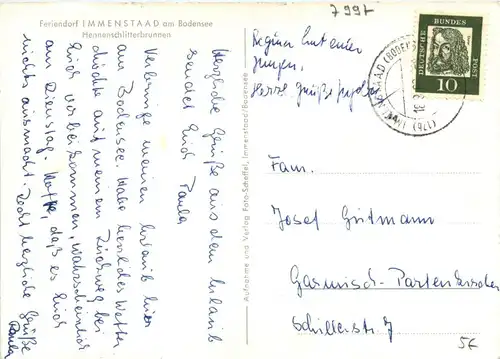 7997
Feriendorf IMMENSTAAD am Bodensee
Hennenschlitterbrunnen
Herzliche Grüße aus dem Urlaub
sendet Euch Paula
Verbringe meinen Urlaub hier
am Bodensee. Habe herrliches Wetter
möchte auf meinem Rückweg bei
Euch vorbeikommen, wahrscheinlich
am Dienstag. Hoffe, daß es Euch
nichts ausmacht. Recht herzliche Grüße
Paula
Aufnahme und Verlag Foto-Scheffel, Immenstaad/Bodensee
Regina
Herzl. Grüße
DEUTSCHE BUNDESPOST
10
Fam.
Josef Gutmann
Garmisch-Partenkirchen
Schillerstr. 7